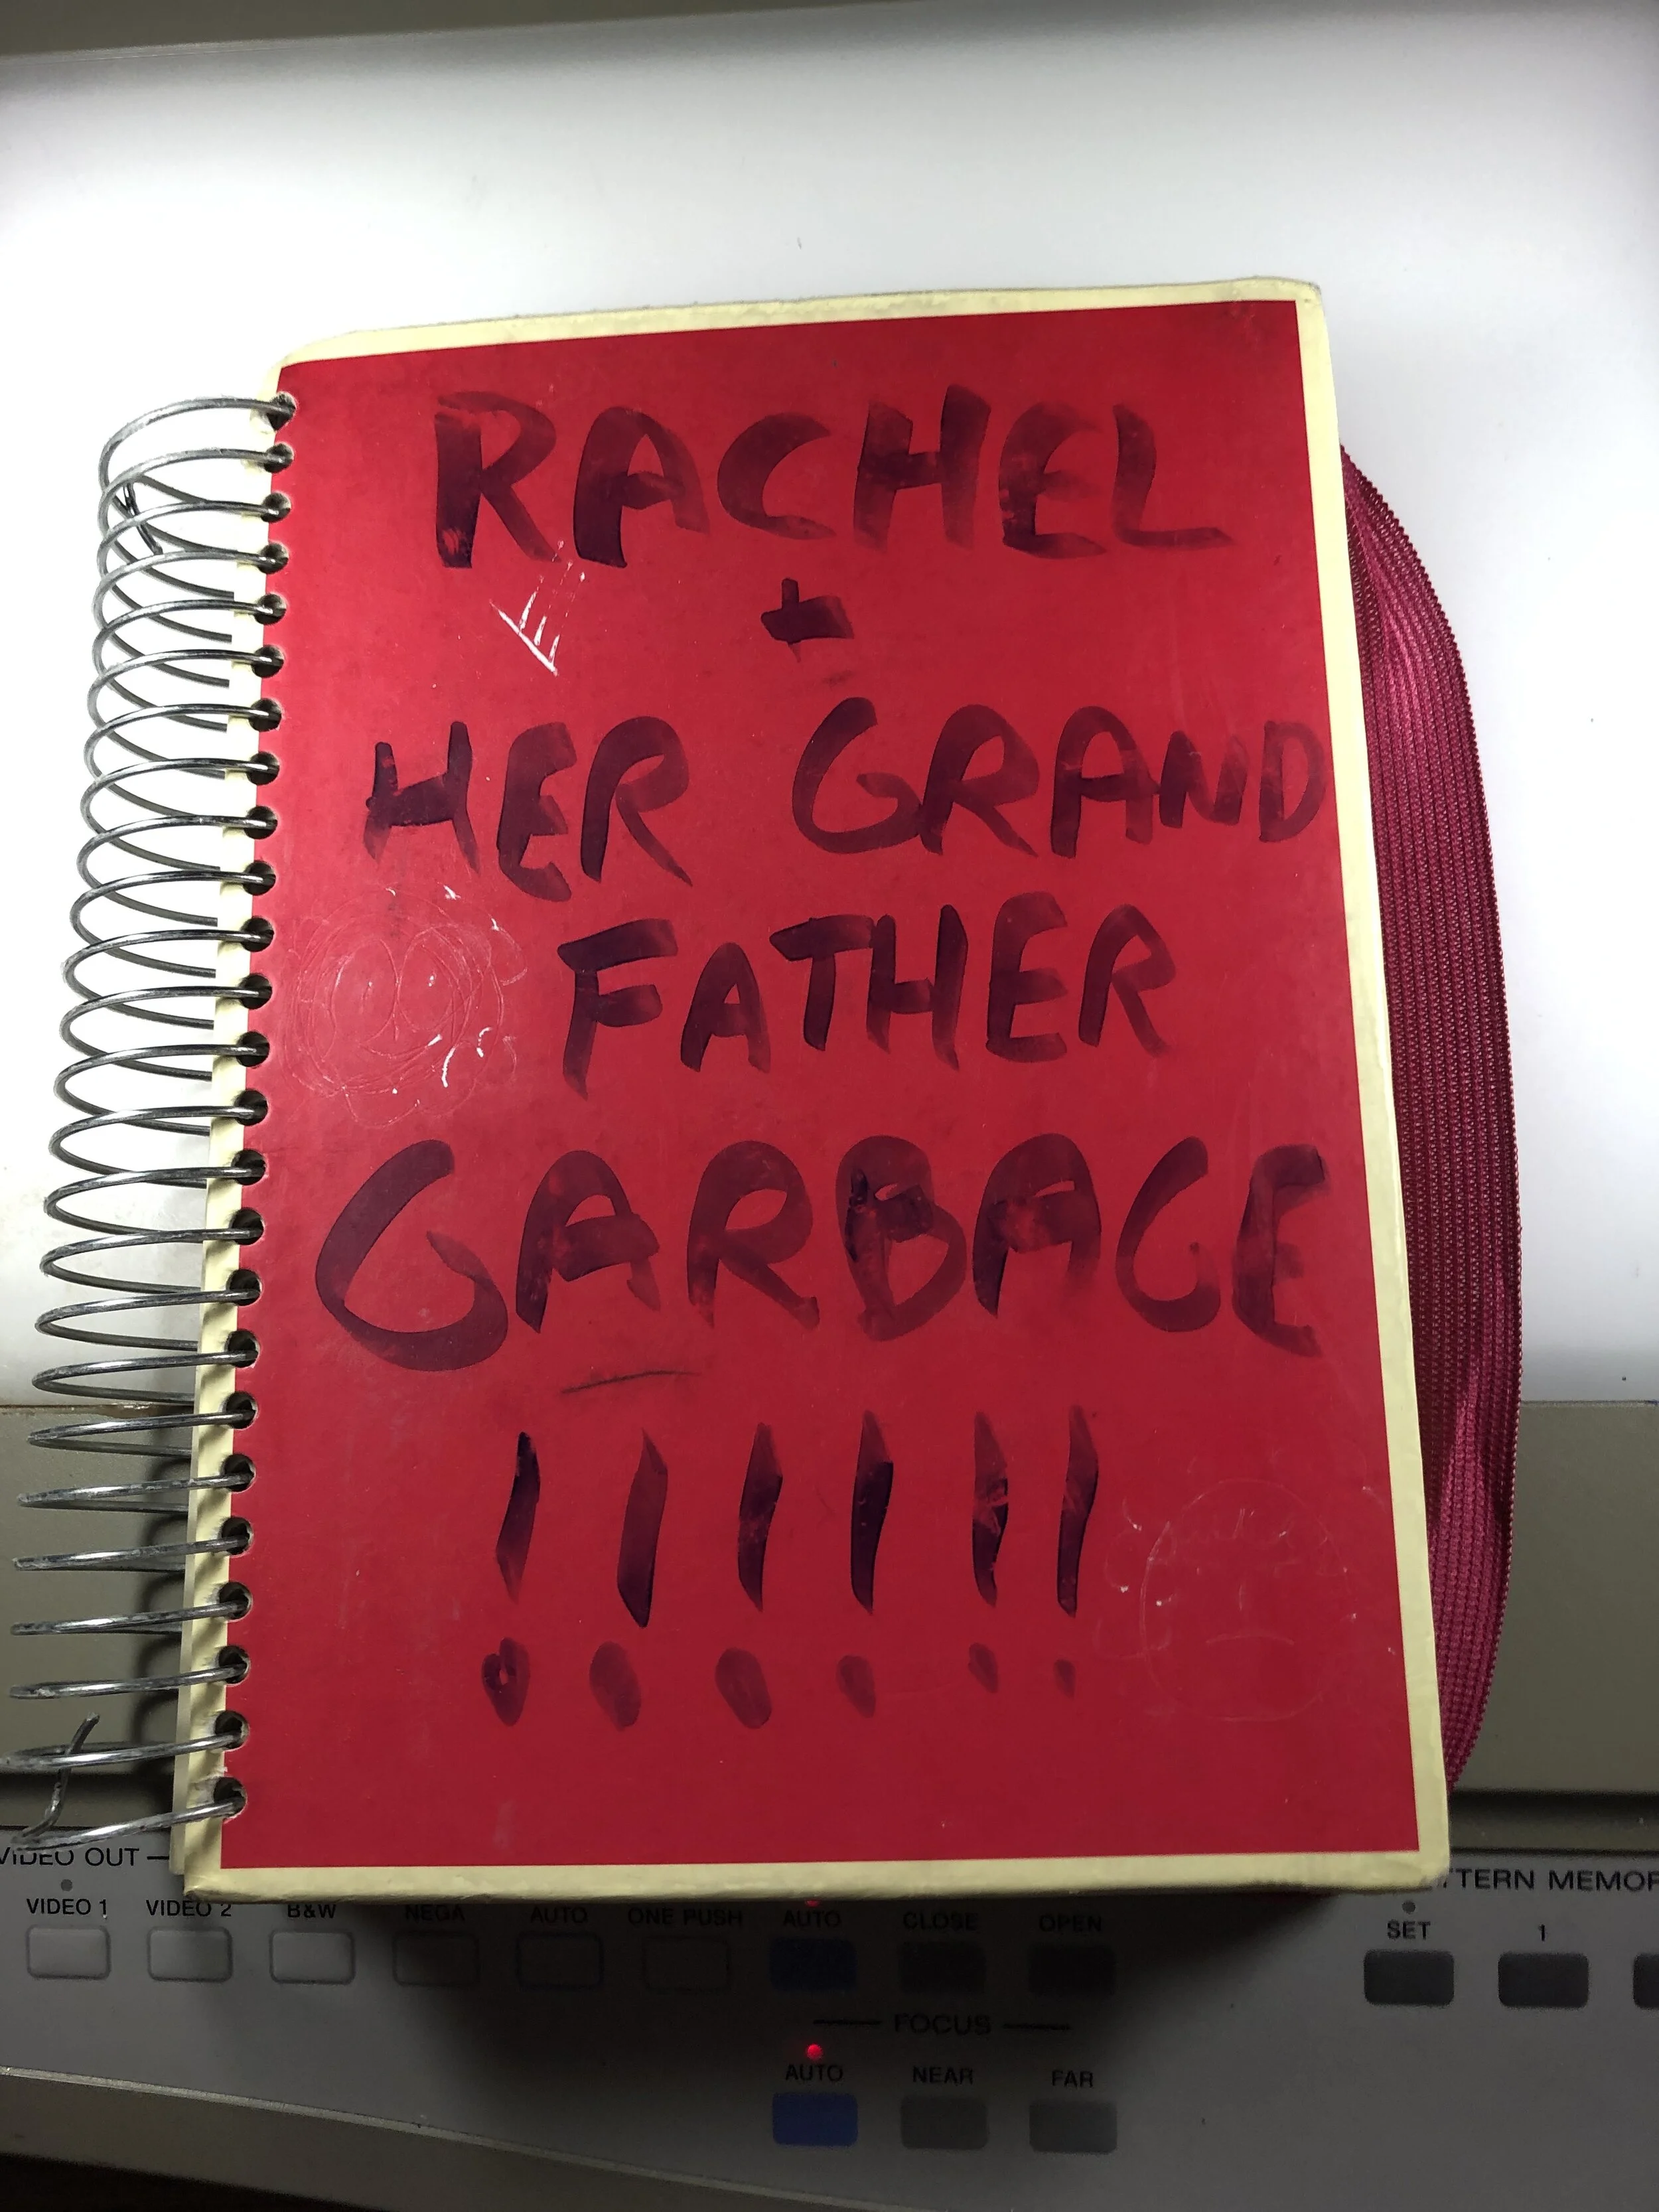 RACHEL
+
HER GRAND
FATHER
GARBAGE
!!!!!!
VIDEO OUT
VIDEO 1 VIDEO 2 B&W NEGA AUTO ONE PUSH AUTO CLOSE OPEN
SET 1
FOCUS
AUTO NEAR FAR